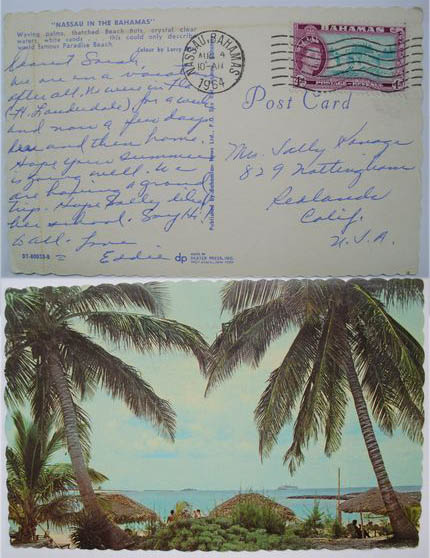 "NASSAU IN THE BAHAMAS"
Waving palms, thatched Beach Huts, crystal clear
waters, white sands . . . this could only describe
world famous Paradise Beach.
Colour by Larry
Dearest Sarah,
We are on a
after all. We were in Fla
(Ft. Lauderdale) for a week
and now a few days
here and then home.
Hope your summer
is going well. We
are having a grand
trip. Hope Sally likes
her school. Say Hi
to all. Love
Eddie
DT-80033-B
dp
MADE BY
DEXTER PRESS, INC.
WEST NYACK, NEW YORK
Published by
NASSAU, BAHAMAS
AUG 4
10-AM
1964
BAHAMAS
4d
POSTAGE
Post Card
829 Nottingham
Redlands
Calif.
U.S.A.